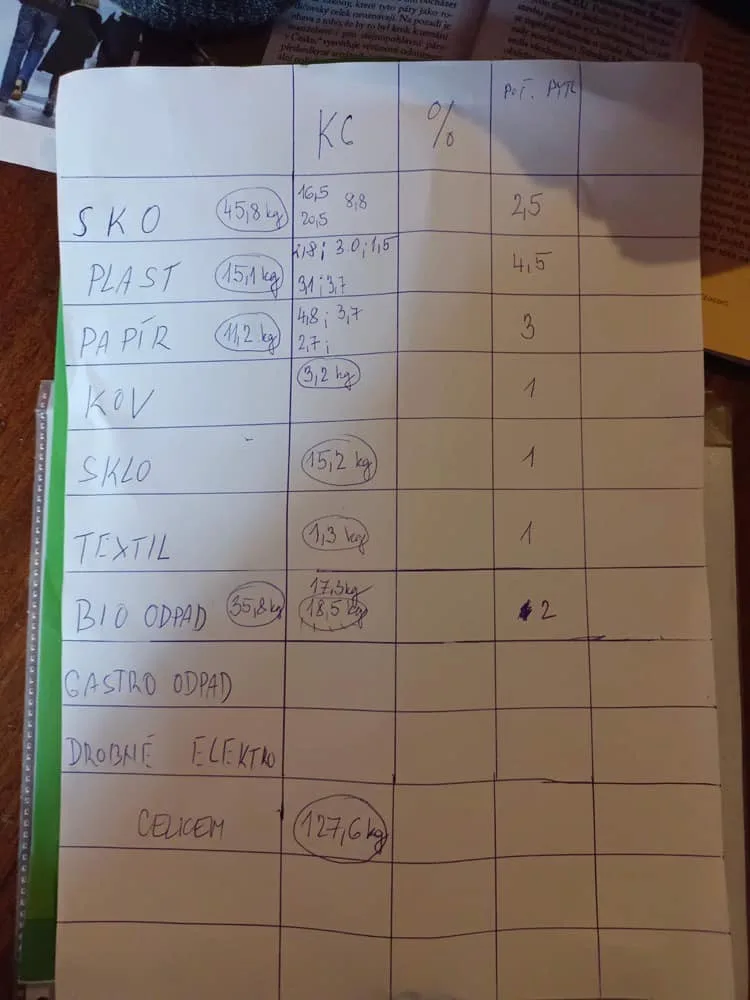 KG % POČ. PYTL
SKO 45,8 kg 16,5 8,8 2,5
20,5
PLAST 15,1 kg 2,8; 3.0; 1,5 4,5
3,1; 3,7
PAPÍR 11,2 kg 4,8; 3,7 3
2,7;
KOV 3,2 kg 1
SKLO 15,2 kg 1
TEXTIL 1,3 kg 1
17,3kg
BIO ODPAD 35,8 kg 18,5 kg 2
GASTRO ODPAD
DROBNÉ ELEKTRO
CELKEM 127,6 kg